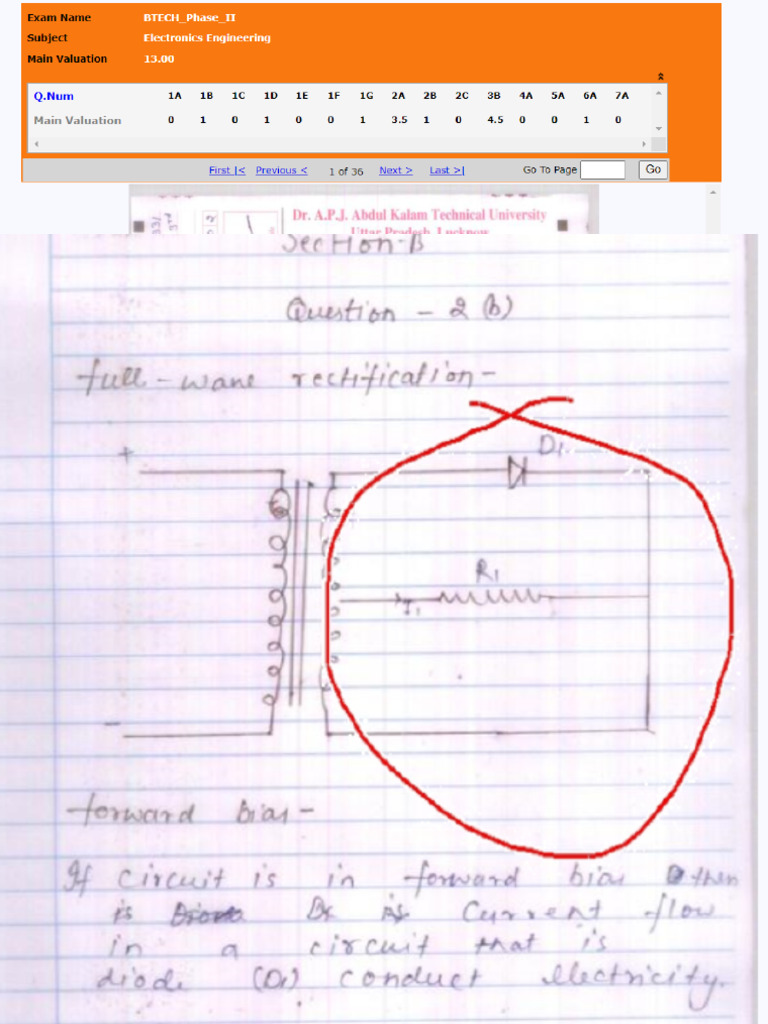 Exam Name BTECH_Phase_II
Subject Electronics Engineering
Main Valuation 13.00
Q.Num 1A 1B 1C 1D 1E 1F 1G 2A 2B 2C 3B 4A 5A 6A 7A
Main Valuation 0 1 0 1 0 0 1 3.5 1 0 4.5 0 0 1 0
First |< Previous < 1 of 36 Next > Last >| Go To Page Go
Dr. A.P.J. Abdul Kalam Technical University
Uttar Pradesh, Lucknow
Section-B
Question - 2 (b)
full-wave rectification-
+
D1
R1
I1
-
forward bias-
If circuit is in forward bias then
is Current flow
in a circuit that is
diode (D1) conduct electricity.